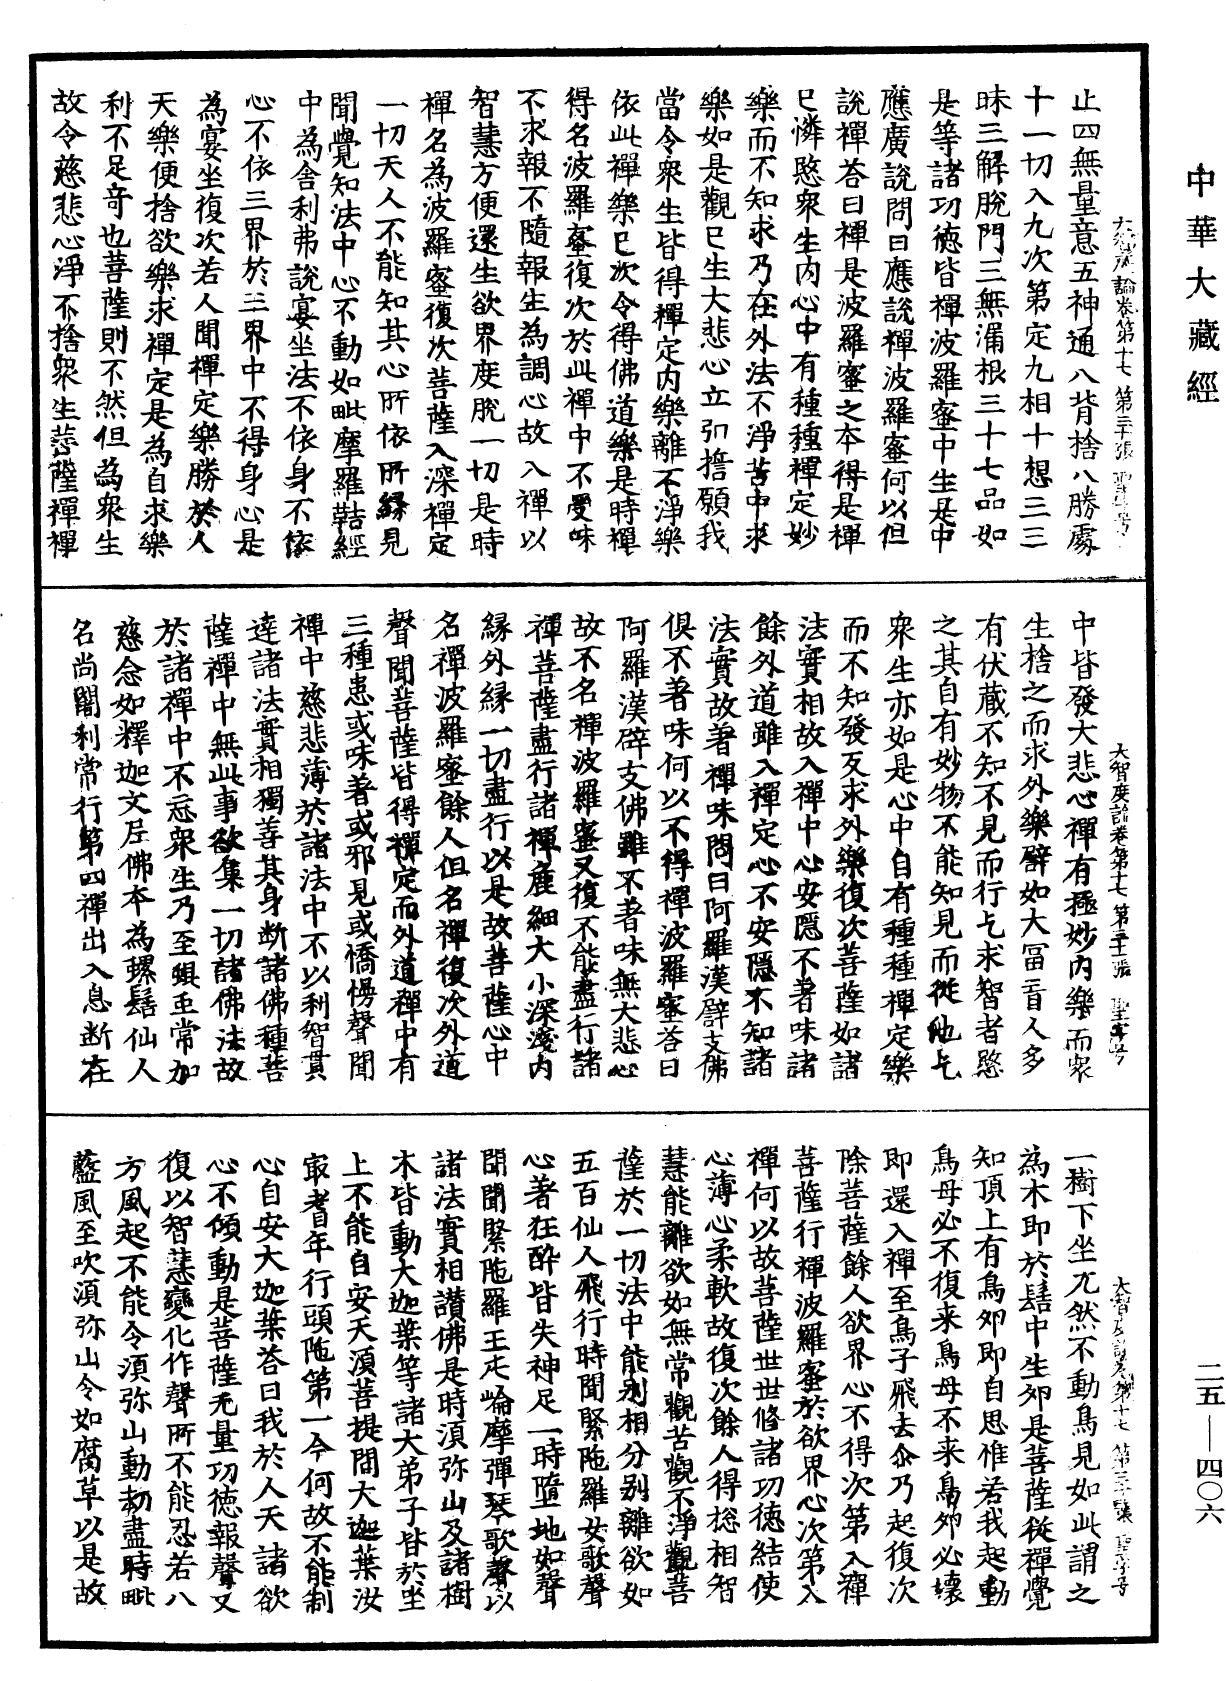 中華大藏經
大智度論卷第十七 第三十張 聖字号
止四無量意五神通八背捨八勝處
十一切入九次第定九相十想三三
昧三解脫門三無漏根三十七品如
是等諸功德皆禪波羅蜜中生是中
應廣說問曰應說禪波羅蜜何以但
說禪荅曰禪是波羅蜜之本得是禪
已憐愍眾生內心中有種種禪定妙
樂而不知求乃在外法不淨苦中求
樂如是觀已生大悲心立弘擔願我
當令眾生皆得禪定內樂離不淨樂
依此禪樂已次令得佛道樂是時禪
得名波羅蜜復次於此禪中不受味
不求報不隨報生為調心故入禪以
智慧方便還生欲界度脫一切是時
禪名為波羅蜜復次菩薩入深禪定
一切天人不能知其心所依所緣見
聞覺知法中心不動如毗摩羅鞊經
中為舍利弗說宴坐法不依身不依
心不依三界於三界中不得身心是
為宴坐復次若人聞禪定樂勝於人
天樂便捨欲樂求禪定是為自求樂
利不足奇也菩薩則不然但為眾生
故令慈悲心淨不捨眾生菩薩禪禪
大智度論卷第十七 第三十一張 聖字号
中皆發大悲心禪有極妙內樂而眾
生捨之而求外樂譬如大冨盲人多
有伏藏不知不見而行乞求智者愍
之其自有妙物不能知見而從他乞
眾生亦如是心中自有種種禪定樂
而不知發反求外樂復次菩薩如諸
法實相故入禪中心安隱不著味諸
餘外道雖入禪定心不安隱不知諸
法實故著禪味問曰阿羅漢辟支佛
俱不著味何以不得禪波羅蜜荅曰
阿羅漢辟支佛雖不著味無大悲心
故不名禪波羅蜜又復不能盡行諸
禪菩薩盡行諸禪麁細大小深淺內
緣外緣一切盡行以是故菩薩心中
名禪波羅蜜餘人但名禪復次外道
聲聞菩薩皆得禪定而外道禪中有
三種患或味著或邪見或憍慢聲聞
禪中慈悲薄於諸法中不以利智貫
達諸法實相獨善其身斷諸佛種菩
薩禪中無此事欲集一切諸佛法故
於諸禪中不忘眾生乃至蜫虫常加
慈念如釋迦文尼佛本為螺髻仙人
名尚闍利常行第四禪出入息断在
大智度論卷第十七 第三十二張 聖字号
一樹下坐兀然不動鳥見如此謂之
為木即於髻中生夘是菩薩從禪覺
知頂上有鳥夘即自思惟若我起動
鳥母必不復来鳥母不来鳥夘必壞
即還入禪至鳥子飛去尒乃起復次
除菩薩餘人欲界心不得次第入禪
菩薩行禪波羅蜜於欲界心次第入
禪何以故菩薩世世修諸功德結使
心薄心柔軟故復次餘人得捴相智
慧能離欲如無常觀苦觀不淨觀菩
薩於一切法中能別相分別離欲如
五百仙人飛行時聞緊陁羅女歌聲
心著狂醉皆失神足一時墮地如聲
聞聞緊陁羅王屯崘摩彈琴歌聲以
諸法實相讃佛是時須弥山及諸樹
木皆動大迦葉等諸大弟子皆於坐
上不能自安天湏菩提問大迦葉汝
㝡耆年行頭陁第一今何故不能制
心自安大迦葉荅曰我於人天諸欲
心不傾動是菩薩无量功德報聲又
復以智慧變化作聲所不能忍若八
方風起不能令須弥山動劫盡時毗
藍風至吹須弥山令如腐草以是故
二五—四〇六